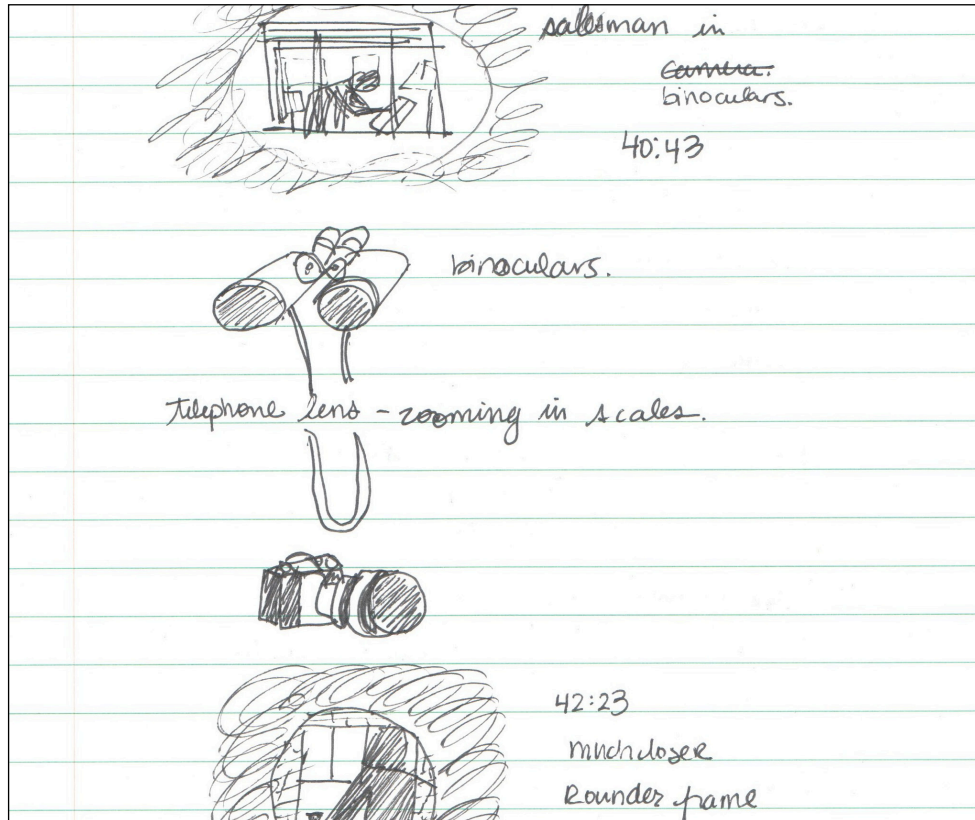 salesman in
Camera.
binoculars.
40:43
binoculars.
telephone lens - zooming in scales.
42:23
much closer
Rounder frame